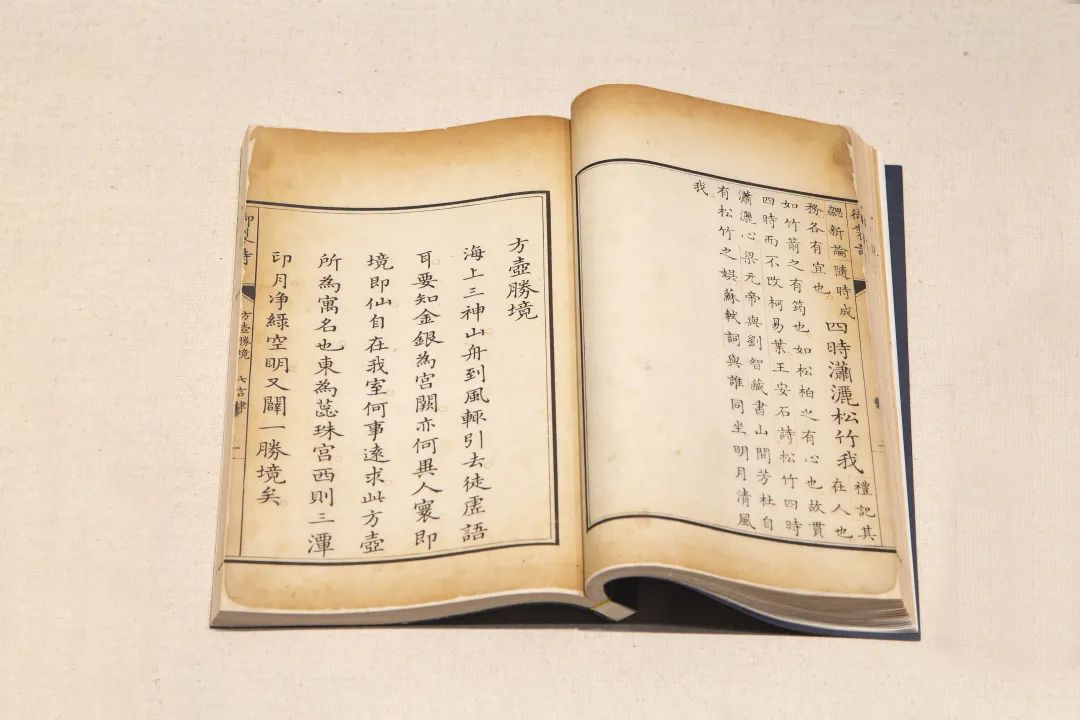 勰新論隨時成
務各有宜也
四時瀟灑松竹我
禮記其
在人也
如竹箭之有筠也如松柏之有心也故貫
四時而不改柯易葉王安石詩松竹四時
瀟灑心梁元帝與劉智藏書山間芳杜自
有松竹之娛蘇軾詞與誰同坐明月清風
我
方壺勝境
海上三神山舟到風輒引去徒虛語
耳要知金銀為宮闕亦何異人寰即
境即仙自在我室何事遠求此方壺
所為寓名也東為蕊珠宮西則三潭
印月净綠空明又闢一勝境矣
御製詩
方壺勝境
七言律
一